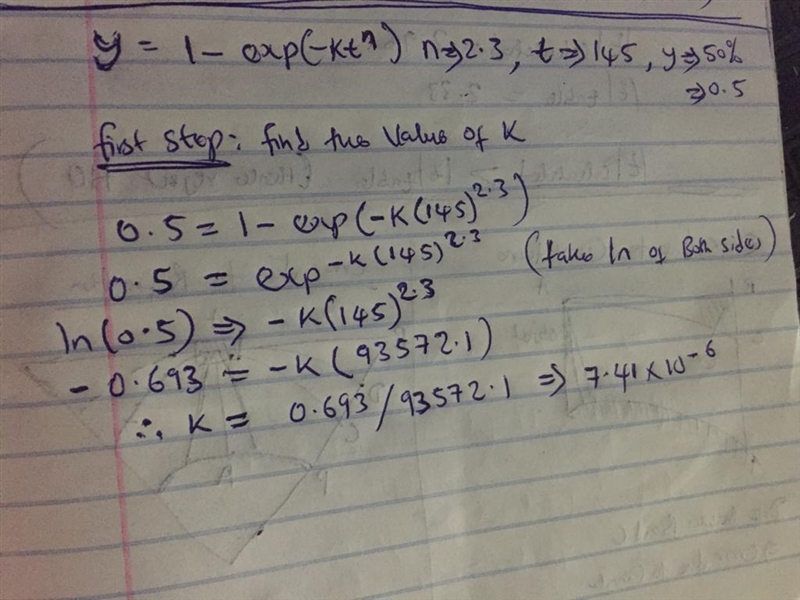 y = 1 - exp(-kt^n) n⇒2.3, t⇒145, y⇒50%
⇒0.5
first step: find the value of K
0.5 = 1 - exp(-K(145)^2.3)
0.5 = exp^-K(145)^2.3 (take ln of Both sides)
ln(0.5) ⇒ -K(145)^2.3
-0.693 = -K(93572.1)
∴ K = 0.693/93572.1 ⇒ 7.41×10^-6